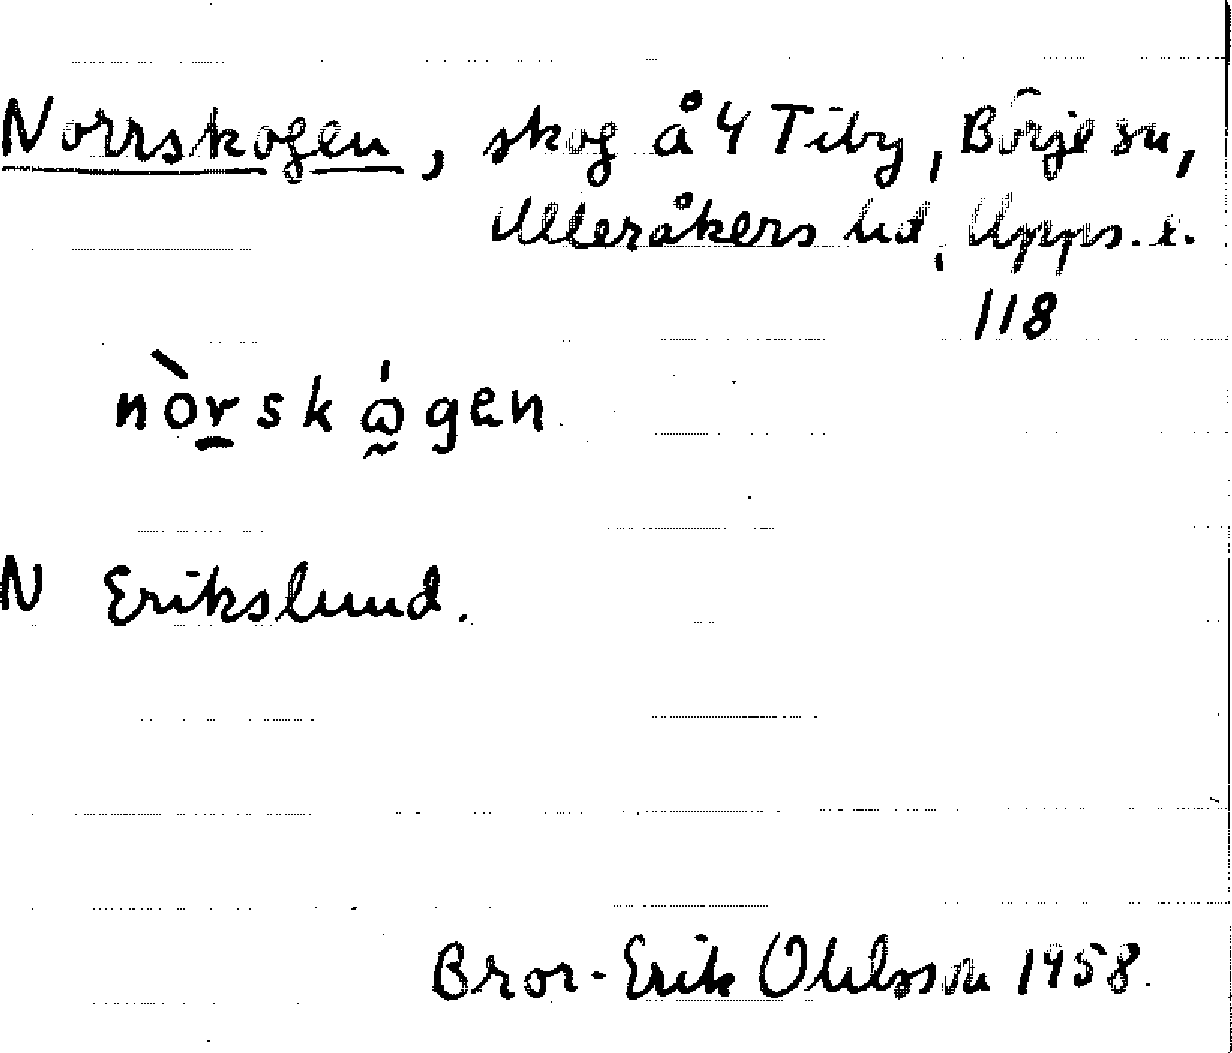 Norrskogen, skog å 4 Tiby, Börje sn,
Ulleråkers hd, Upps. l.
118
nòrskɷ́gen
N Erikslund.
Bror-Erik Ohlsson 1958.